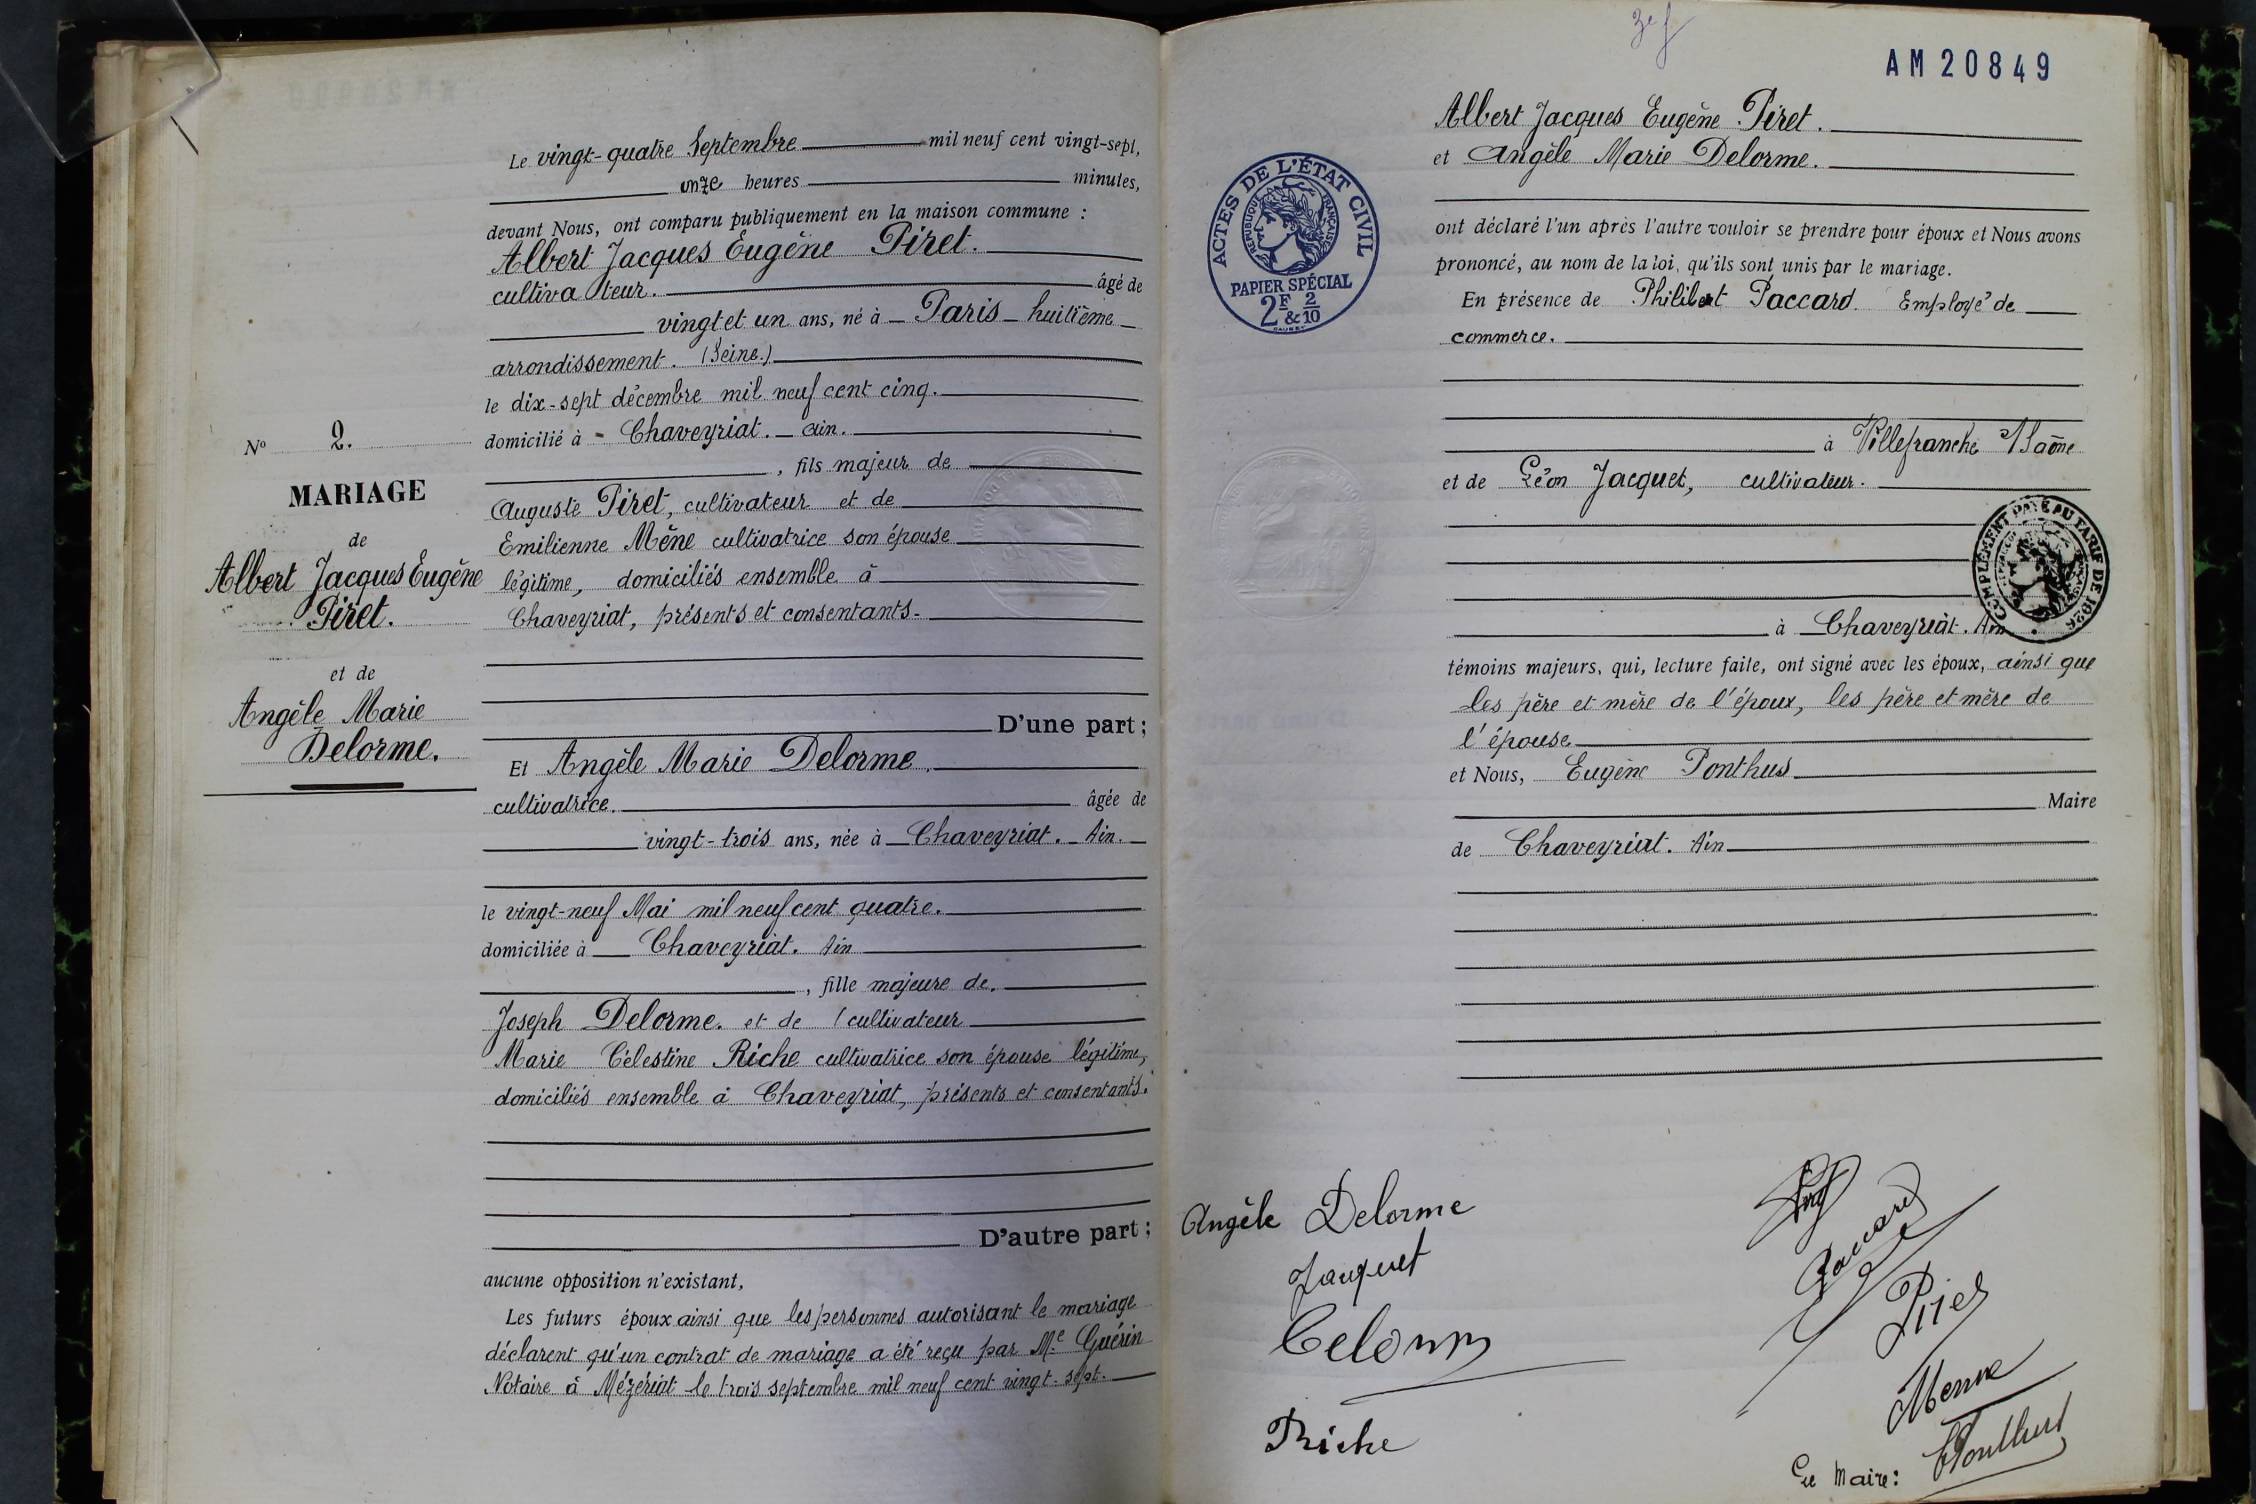 Le vingt-quatre Septembre mil neuf cent vingt-sept,
onze heures minutes,
devant Nous, ont comparu publiquement en la maison commune :
Albert Jacques Eugène Piret.
cultivateur. âgé de
vingt et un ans, né à Paris huitième
arrondissement. (Seine.)
le dix-sept décembre mil neuf cent cinq.
domicilié à - Chaveyriat. - Ain.
, fils majeur de
Auguste Piret, cultivateur et de
Emilienne Mêne cultivatrice son épouse
légitime, domiciliés ensemble à
Chaveyriat, présents et consentants.
D'une part ;
Et Angèle Marie Delorme
cultivatrice. âgée de
vingt-trois ans, née à Chaveyriat. - Ain. -
le vingt-neuf Mai mil neuf cent quatre.
domiciliée à Chaveyriat. Ain
, fille majeure de.
Joseph Delorme. et de / cultivateur
Marie Célestine Riche cultivatrice son épouse légitime,
domiciliés ensemble à Chaveyriat, présents et consentants.
D'autre part ;
aucune opposition n'existant,
Les futurs époux ainsi que les personnes autorisant le mariage
déclarent qu'un contrat de mariage a été reçu par Me Guérin
Notaire à Mézériat le trois septembre mil neuf cent vingt-sept.
No 2.
MARIAGE
de
Albert Jacques Eugène
Piret.
et de
Angèle Marie
Delorme.
3e f
AM20849
ACTES DE L'ÉTAT CIVIL
RÉPUBLIQUE FRANÇAISE
PAPIER SPÉCIAL
2F & 2/10
Albert Jacques Eugène Piret.
et Angèle Marie Delorme.
ont déclaré l'un après l'autre vouloir se prendre pour époux et Nous avons
prononcé, au nom de la loi, qu'ils sont unis par le mariage.
En présence de Philibert Paccard. Employé de
commerce.
à Villefranche s/Saône
et de Léon Jacquet, cultivateur.
COMPLÉMENT PAYÉ AU TARIF DE 1926
à Chaveyriat. Ain
témoins majeurs, qui, lecture faite, ont signé avec les époux, ainsi que
les père et mère de l'époux, les père et mère de
l'épouse
et Nous, Eugène Ponthus
Maire
de Chaveyriat. Ain
Angèle Delorme
Jacquet
Delorme
Riche
Piret
Paccard
Piret
Menne
Le Maire : E Ponthus